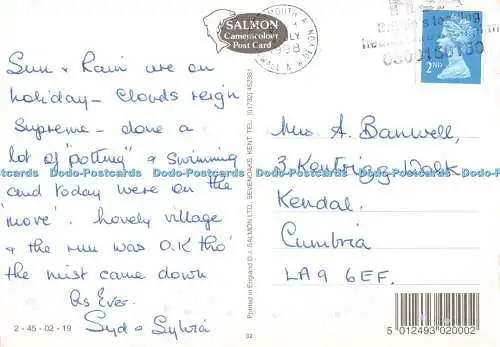 SALMON
Cameracolour
Post Card
Sun & Rain we are on
holiday - Clouds reign
Supreme - done a
lot of "potting" & Swimming
and today were on the
'move'. Lovely village
& the run was O.K tho'
the mist came down
As Ever.
Syd & Sylvia
2-45-02-19
Printed in England © J. SALMON LTD., SEVENOAKS, KENT. TEL. (01732) 452381
52
1998
2ND
Mrs A. Banwell,
3, Kentrigg Walk
Kendal.
Cumbria.
LA9 6EF.
5 012493 020002
Dodo-Postcards Dodo-Postcards Dodo-Postcards Dodo-Postcards